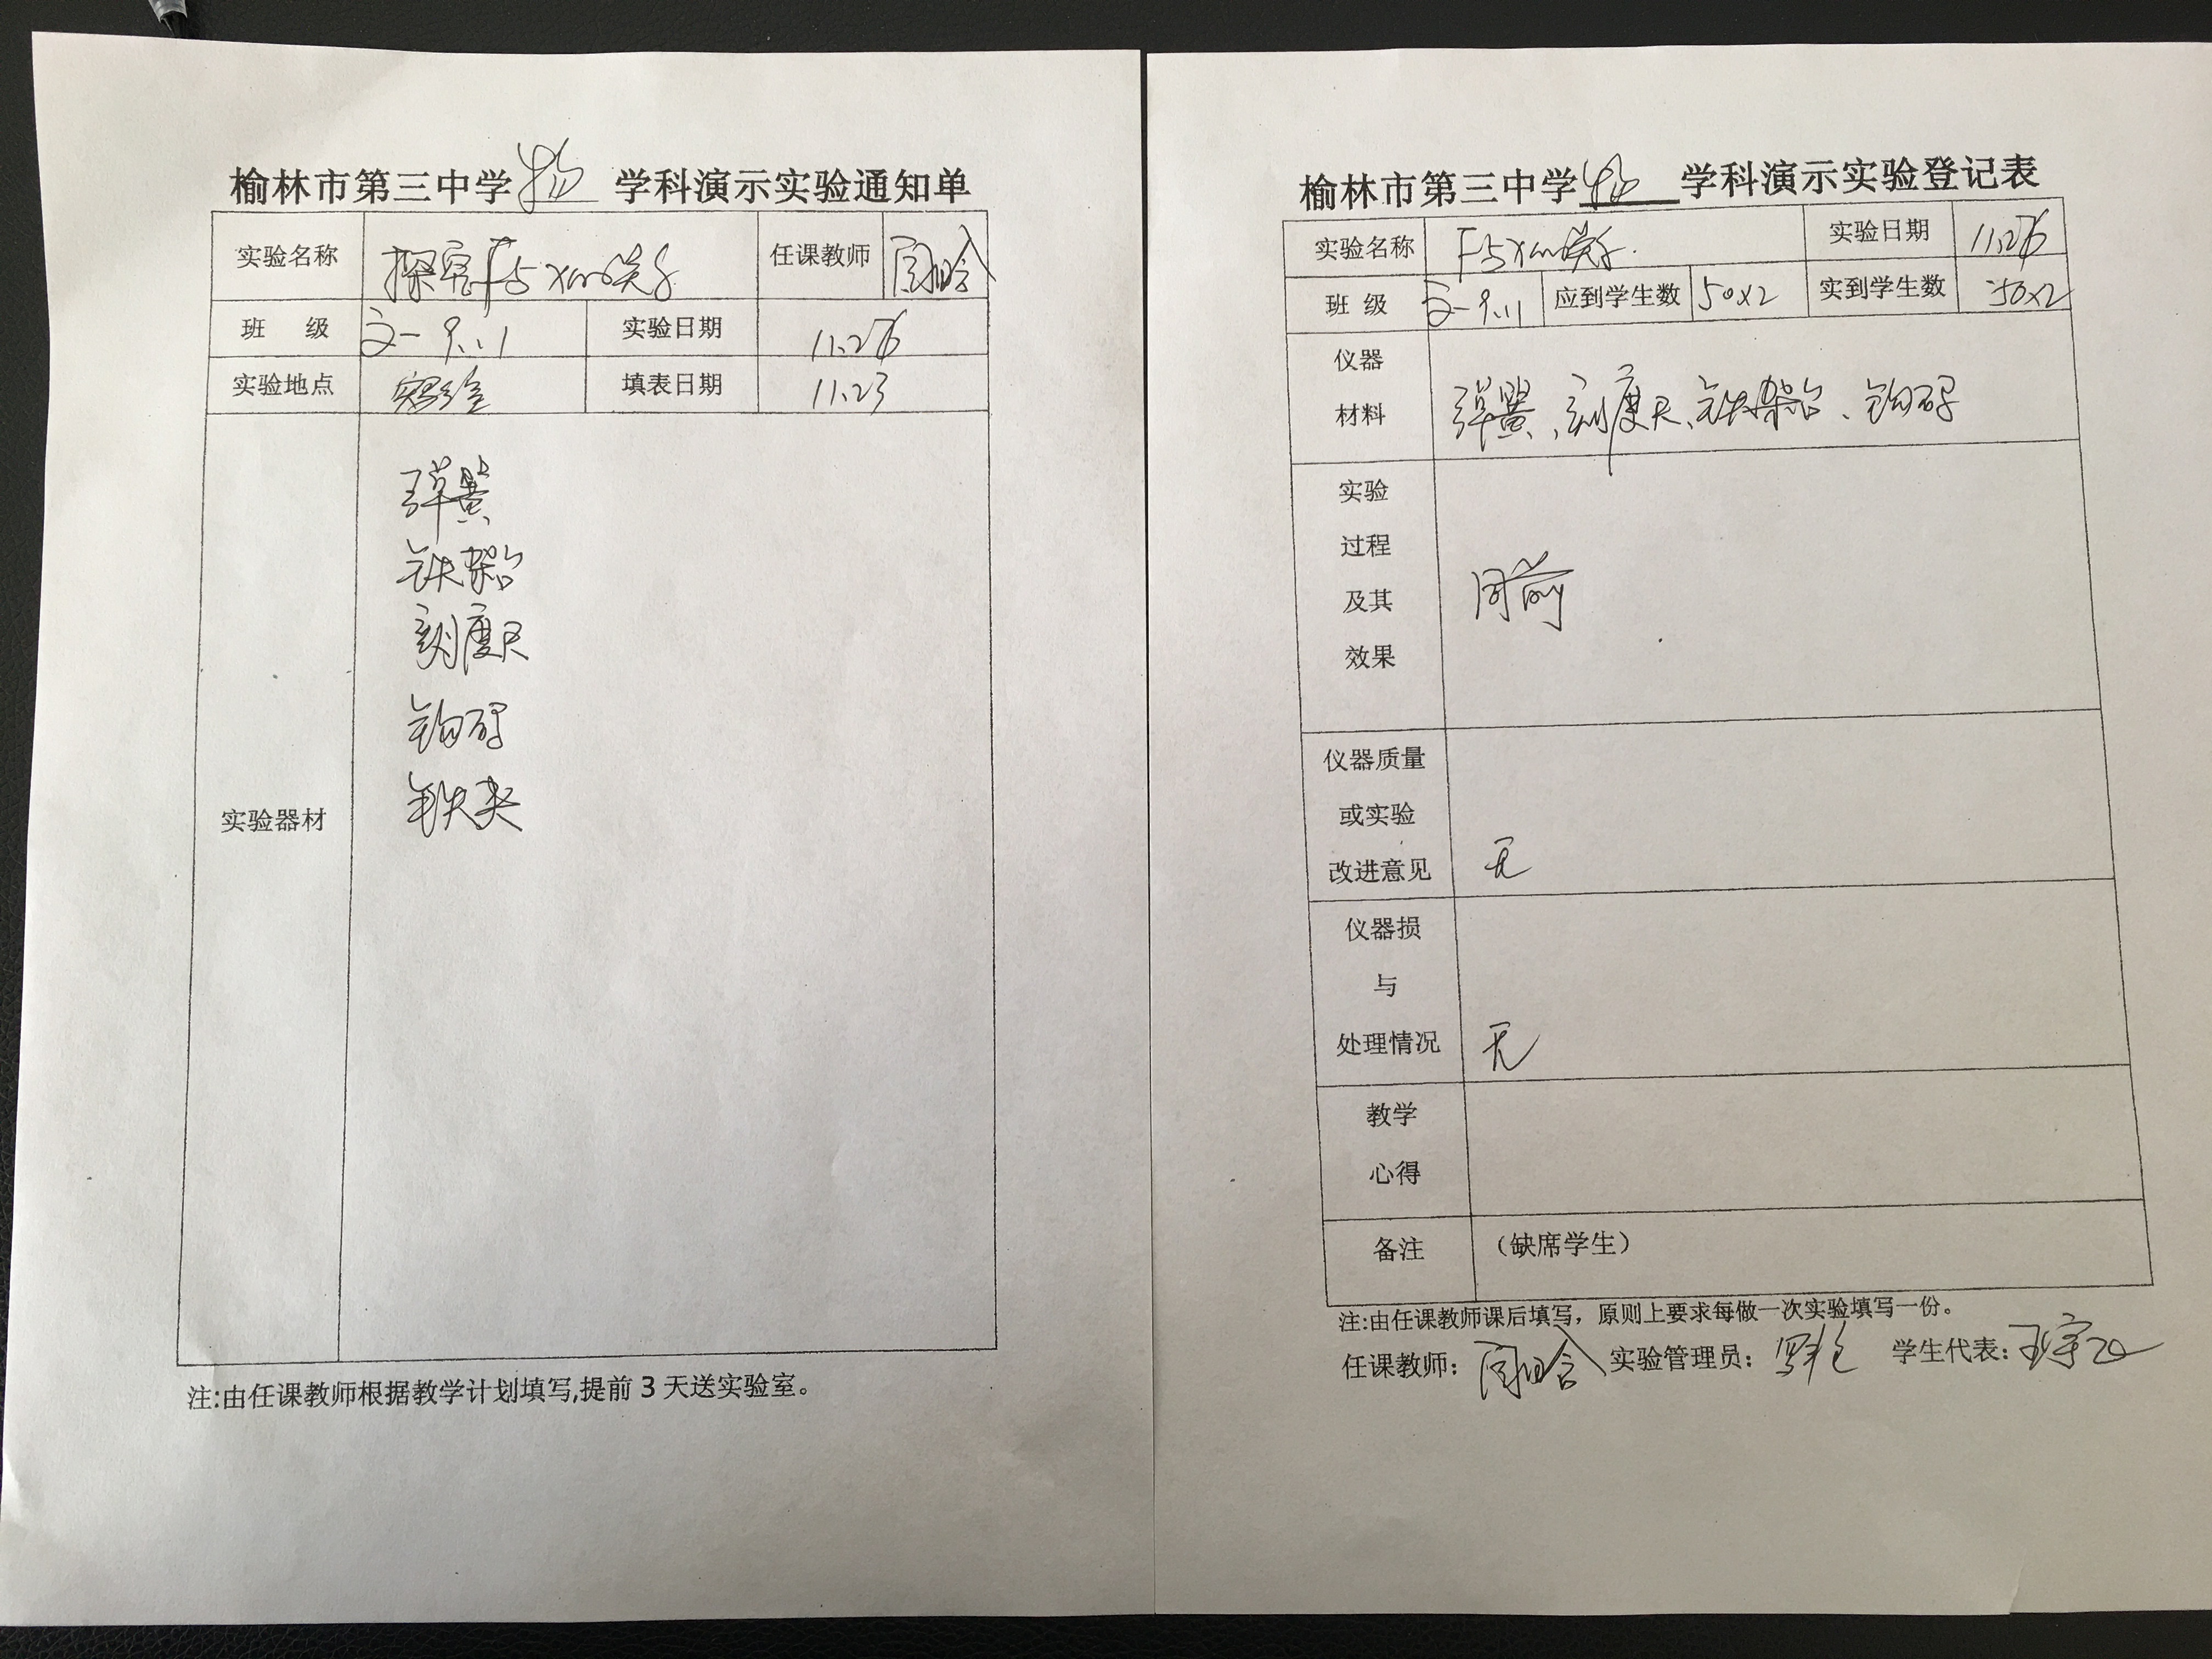 榆林市第三中学 物 学科演示实验通知单
实验名称 探究F与x的关系 任课教师
班 级 高一 9、11 实验日期 11.26
实验地点 实验室 填表日期 11.23
实验器材
弹簧
铁架台
刻度尺
钩码
铁夹
注:由任课教师根据教学计划填写,提前 3 天送实验室。
榆林市第三中学 物 学科演示实验登记表
实验名称 F与x的关系. 实验日期 11.26
班 级 高一 9、11 应到学生数 50×2 实到学生数 50×2
仪器
材料
弹簧、刻度尺、铁架台、钩码
实验
过程
及其
效果
同前
仪器质量
或实验
改进意见
无
仪器损
与
处理情况
无
教学
心得
备注 （缺席学生）
注:由任课教师课后填写，原则上要求每做一次实验填写一份。
任课教师: 实验管理员: 学生代表: